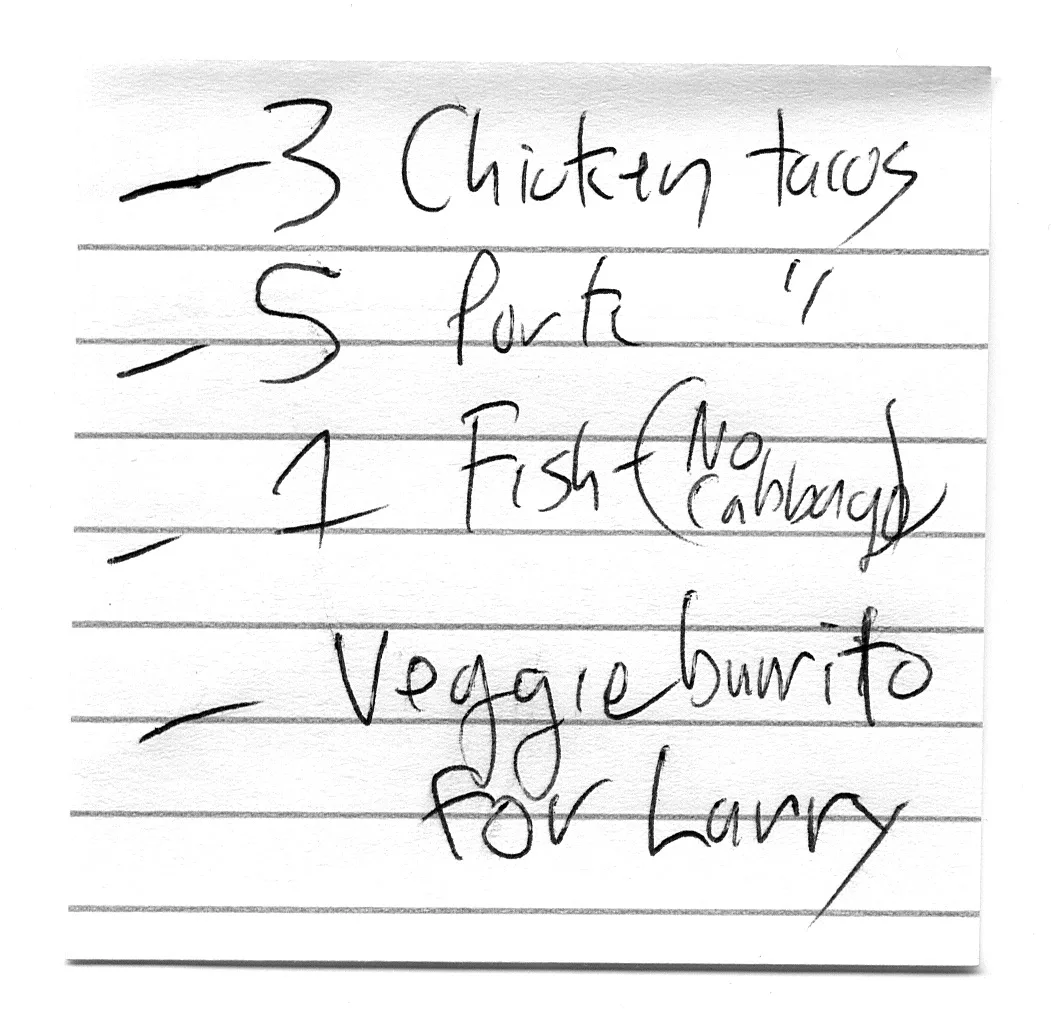 - 3 Chicken tacos
- 5 Pork "
- 1 Fish - (No
cabbage)
- Veggie burrito
for Larry